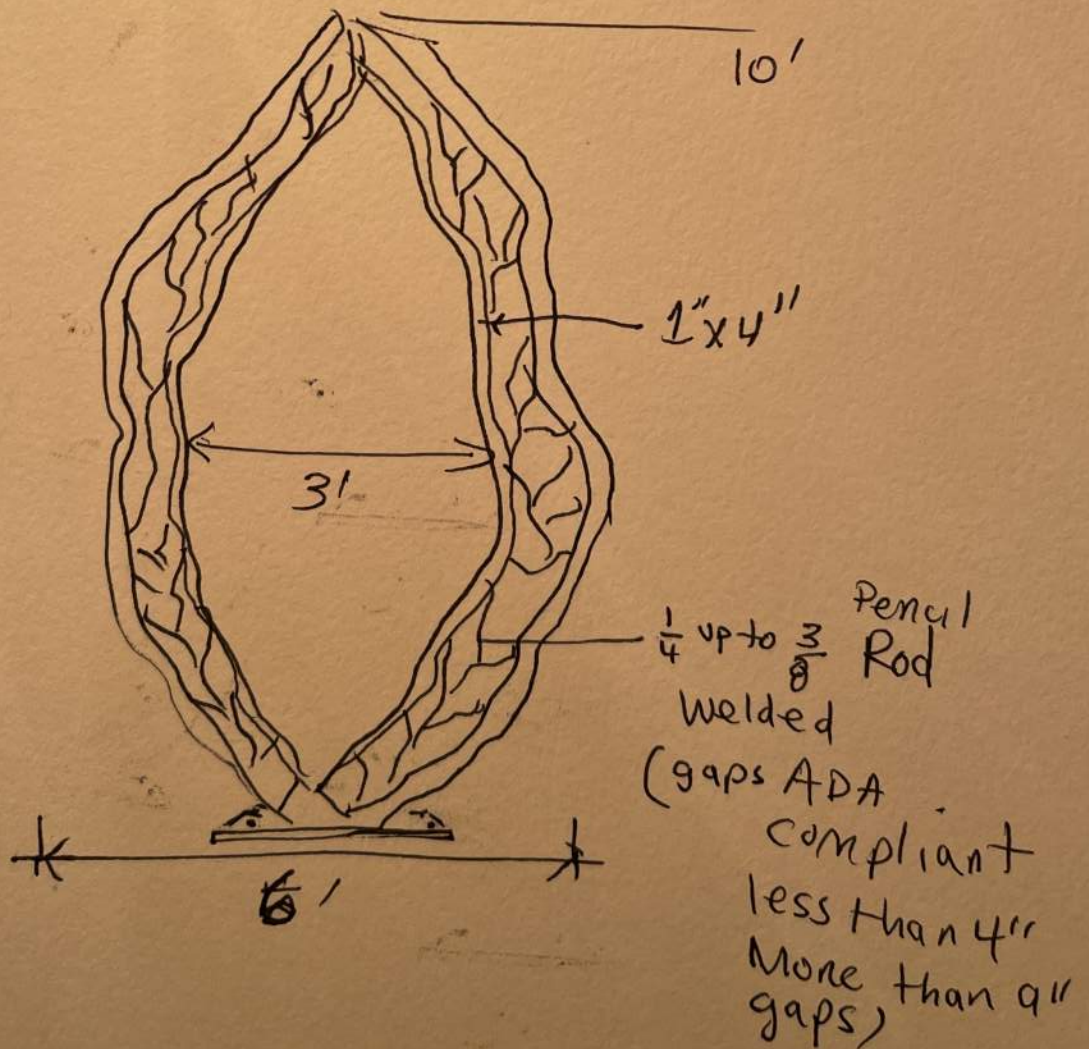 10'
1"x4"
3'
1/4 up to 3/8 Pencil
Rod
Welded
(gaps ADA
compliant
less than 4"
More than 9"
gaps)
6'